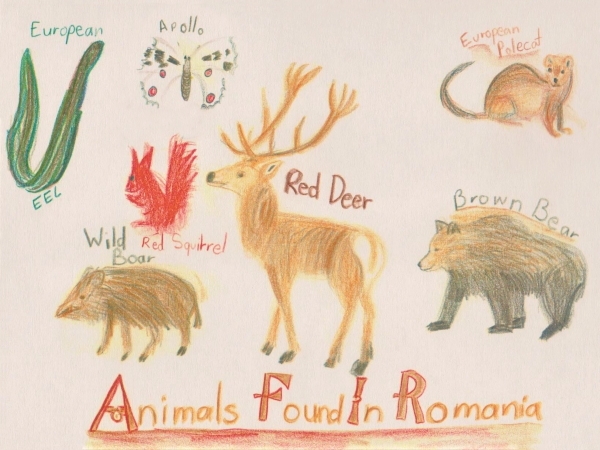 European
EEL
Apollo
European
Polecat
Red Squirrel
Red Deer
Wild
Boar
Brown Bear
Animals Found In Romania